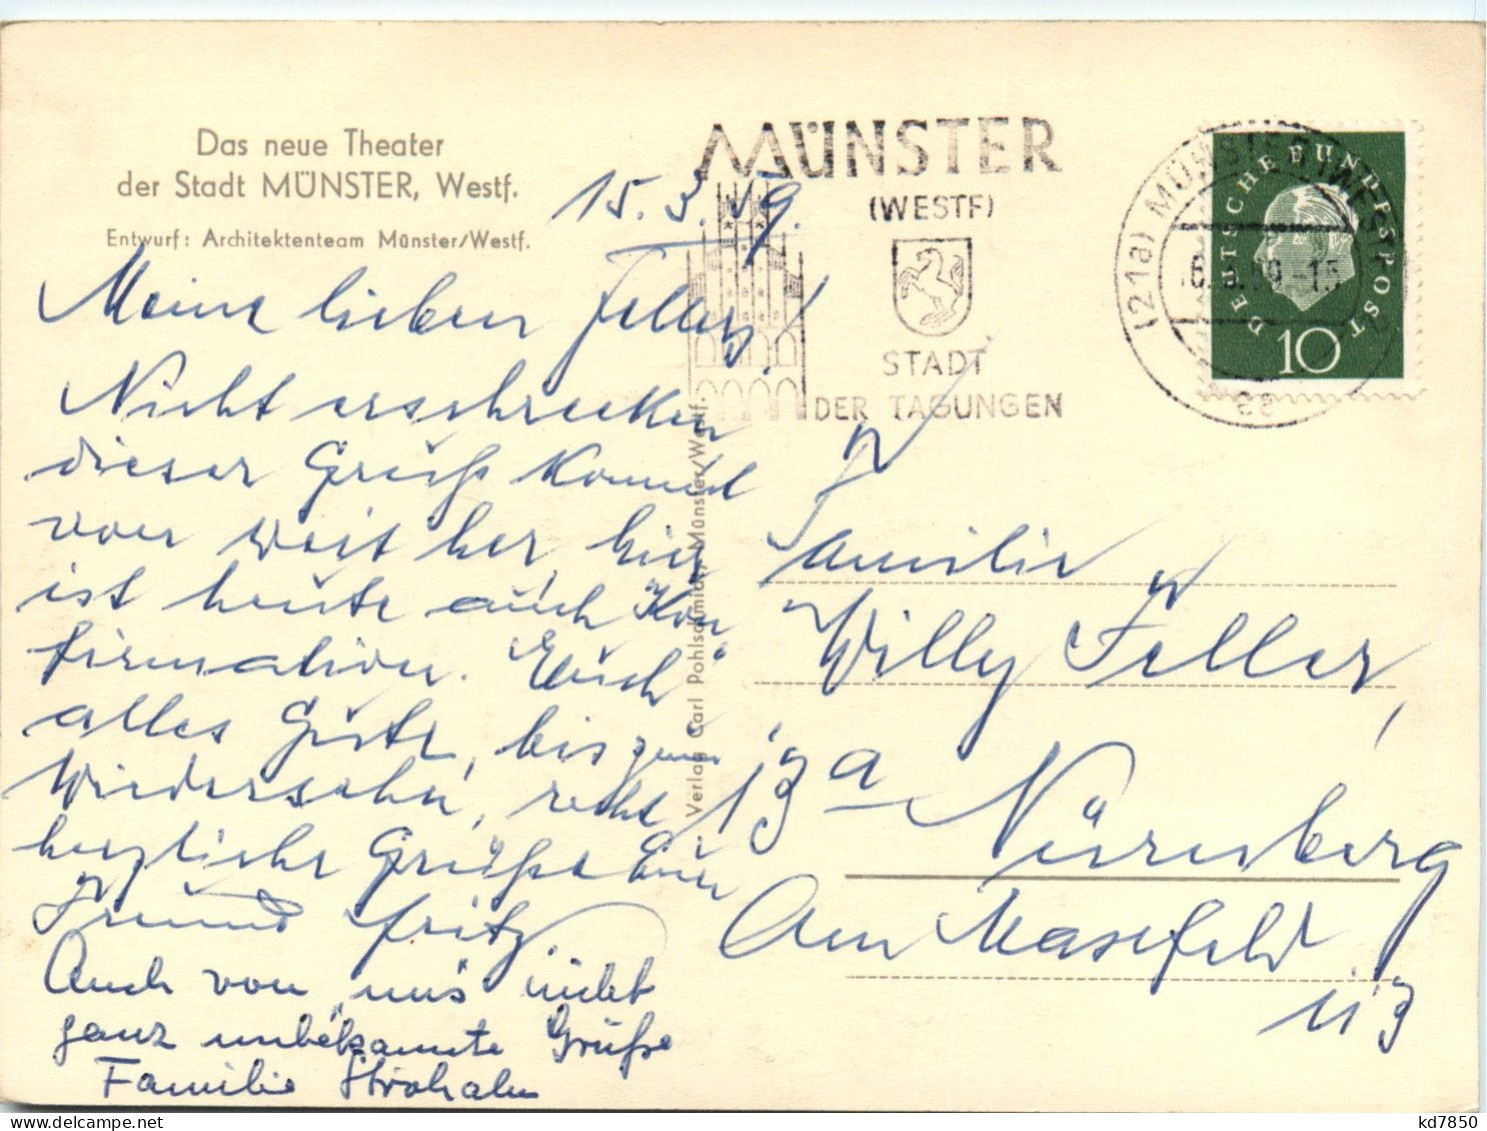 Das neue Theater
der Stadt MÜNSTER, Westf.
Entwurf: Architektenteam Münster/Westf.
15. 3. 59.
Meine lieben Fellers!
Nicht erschrecken
dieser Gruß kommt
von weit her, hier
ist heute auch Kon„
firmation. Euch
alles Gute, bis zum
Wiedersehn, recht
herzliche Grüße Euer
Freund Fritz
Auch von „uns" nicht
ganz unbekannte Grüße
Familie
Verlag Carl Pohlschmidt, Münster/Westf.
MÜNSTER
(WESTF)
STADT
DER TAGUNGEN
(21a) MÜNSTER (WESTF)
-15
DEUTSCHE BUNDESPOST
10
Familie
Willy Feller,
13a Nürnberg
Am Maselfeld
113
kd7850